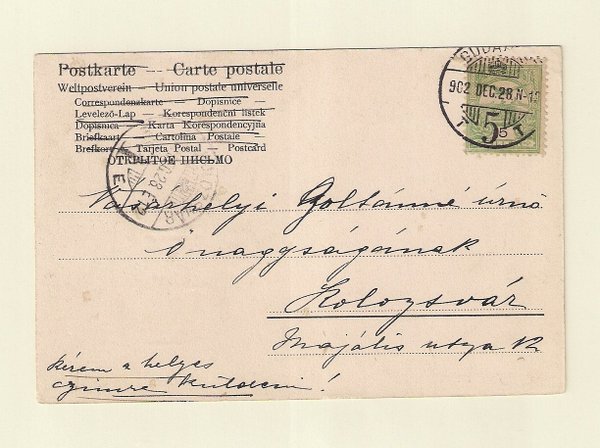 Postkarte — Carte postale
Weltpostverein — Union postale universelle
Correspondenzkarte — Dopisnice —
Levelező-Lap — Korespondenční listek
Dopisnica — Karta Korespondencyjna
Briefkaart — Cartolina Postale —
Brefkort — Tarjeta Postal — Postcard
ОТКРЫТОЕ ПИСЬМО
902 DEC. 28
5
Vásárhelyi Zoltánné úrnő
Önagyságának
Kolozsvár
Majális utcza 12
kérem a helyes
czimre küldeni!